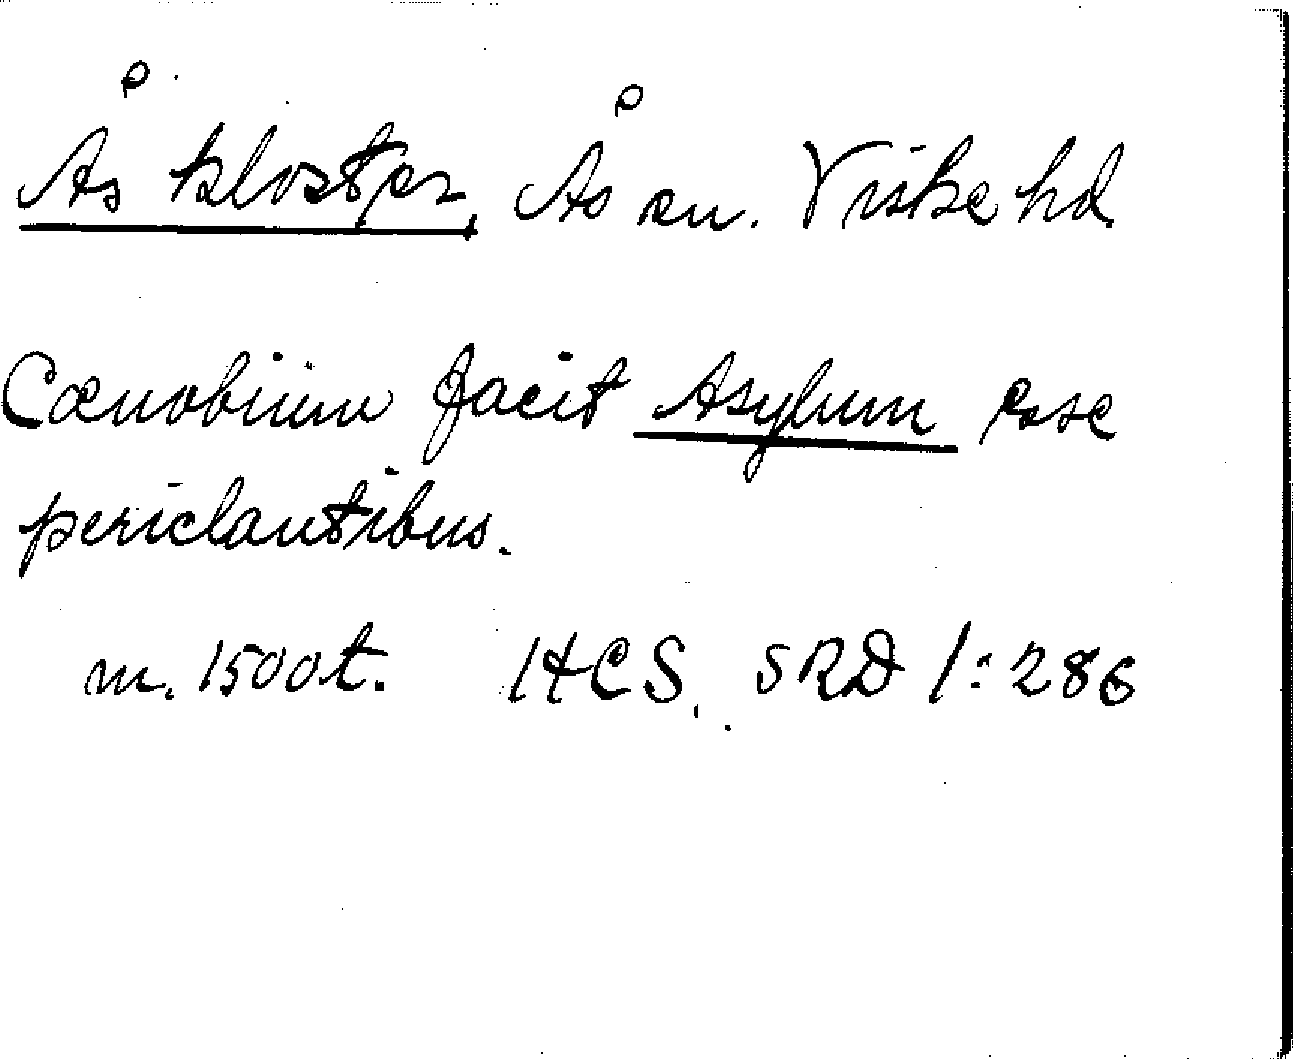 Ås kloster, Ås sn. Viske hd
Cænobium facit Asylum esse
periclantibus.
m. 1500t. HCS, SRD 1:286